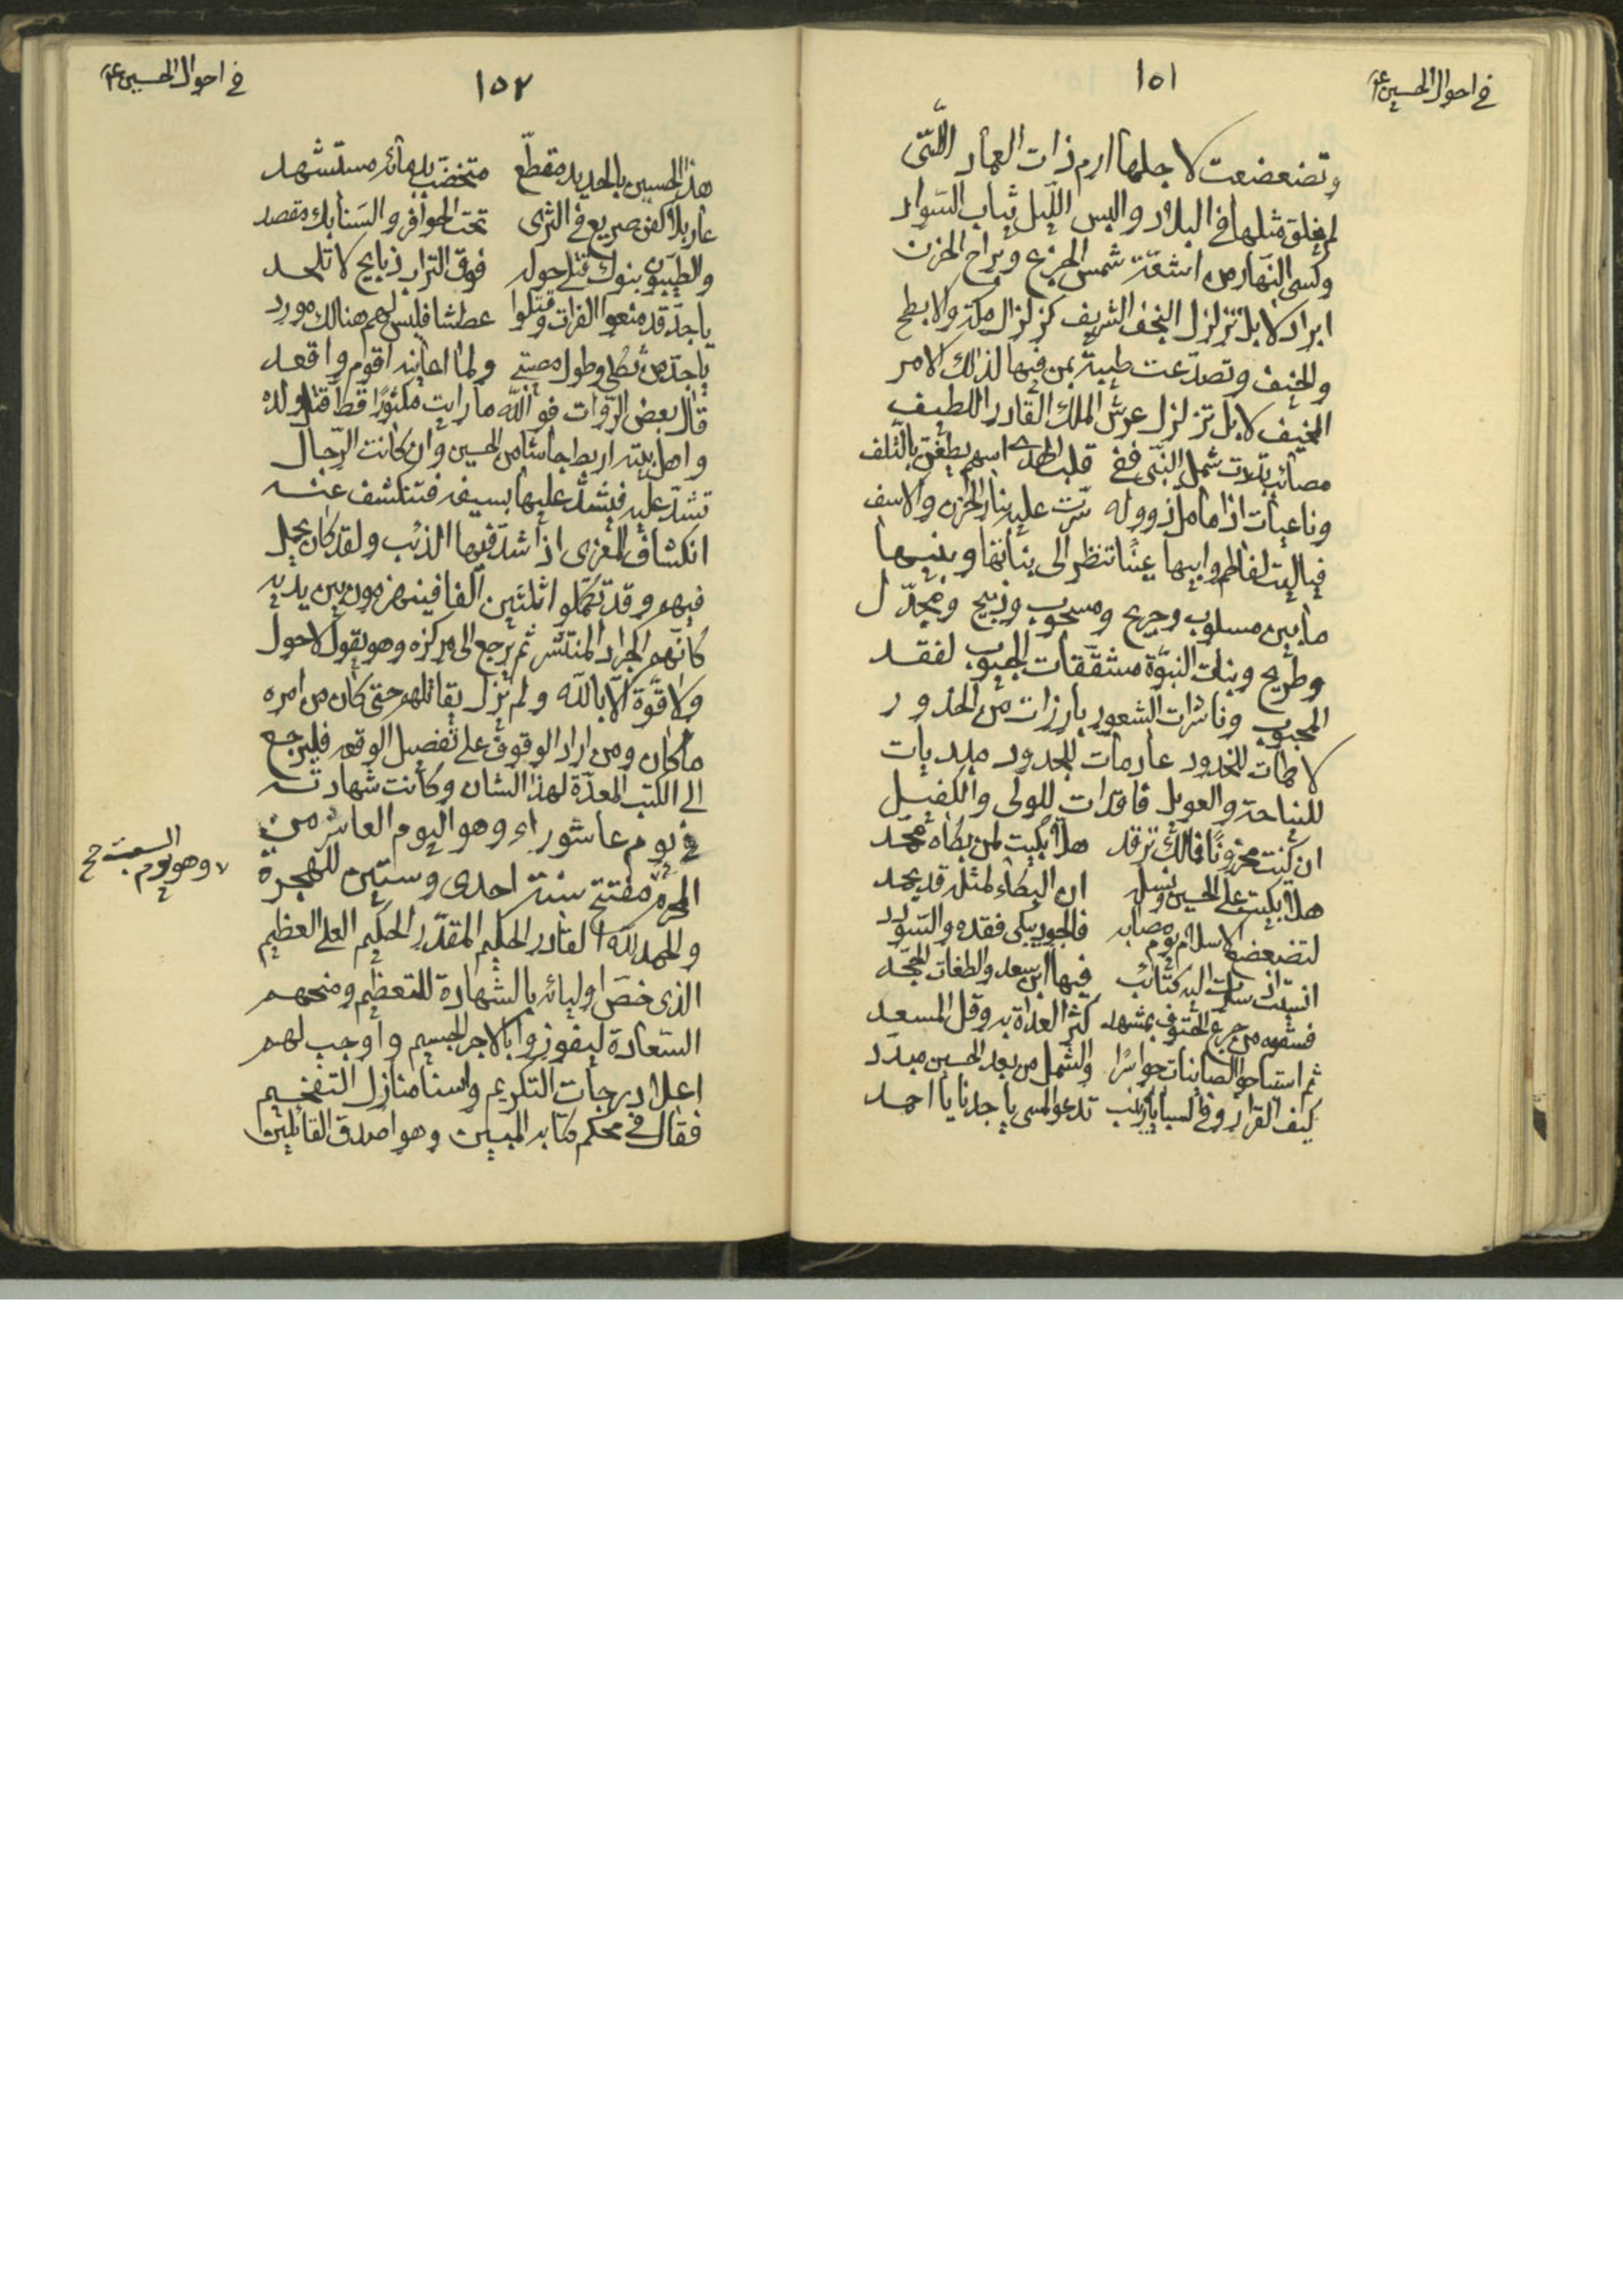 في احوال الحسين ع
١٥١
وتضعضعت لاجلها ارم ذات العماد اللّتى
لم يخلق مثلها في البلاد والبس اللّيل ثياب السّواد
وكسى النّهار من اشعّة شمس الجزع وبراح الحزن
ابراد لا بل تزلزل النجف الشريف كزلزال مكة والابطح
والخيف وتصدّعت طيبة بمن فيها لذلك الامر
المخيف لا بل تزلزل عرش الملك القادر اللطيف
مصائب بدّدت شمل النّبى ففى قلب الهدى اسهم يطفن بالتّلف
وناعيات اذا ما مل ذو وله سرت عليه بنار الحزن والاسف
فيا ليت لفاطم وابيها عينًا تنظر الى بناتها وبنيها
ما بين مسلوب وجريح ومسحوب وذبيح ومجدّل
وطريح وبنات النبوّة مشقّقات الجيوب لفقد
المحبوب وناشرات الشعور بارزات من الخدور
لاطمات للخدود عادمات للجدود مبديات
للنياحة والعويل فاقدات للولى والكفيل
ان كنت محزونًا فمالك ترقد هلا بكيت لمن بكاه محمّد
هلا بكيت على الحسين ونسله ان البكاء لمثله قد يحمد
لتضعضع الاسلام يوم مصابه فالجود يبكى فقده والسّودد
انسيت اذ سارت اليه كتائب فيها ابن سعد والطغات الجحّد
فسقوه من جرع الحتوف بمشهد كثر العداة به وقل المسعد
ثم استباحوا الصاينات حواسرًا والشمل من بعد الحسين مبدّد
كيف القرار وفى السبايا زينب تدعوا المسى يا جدنا يا احمد
في احوال الحسين ع
١٥٢
هذا الحسين بالحديد مقطّع متخضّب بدمائه مستشهد
عار بلا كفن صريع فى الثرى تحت الحوافر والسّنابك مقصد
والطيّبون بنوك قتلى حوله فوق التراب ذبايح لا تلحد
يا جدّ قد منعوا الفرات وقتّلوا عطشا فليس لهم هنالك مورد
يا جدّ من ثكلى وطول مصيبتى ولما اعاينه اقوم واقعد
قال بعض الرّوات فو اللّه ما رايت مكثورًا قط قتل ولده
واهل بيته اربط جاشا من الحسين وان كانت الرّجال
تشدّ عليه فيشدّ عليها بسيفه فتنكشف عنه
انكشاف المعزى اذا شدّ فيها الذئب ولقد كان يحمل
فيهم وقد تكمّلوا ثلثين الفا فينهزمون بين يديه
كانّهم الجراد المنتشر ثم يرجع الى مركزه وهو يقول لا حول
ولا قوّة الّا باللّه ولم يزل يقاتلهم حتى كان من امره
ما كان ومن اراد الوقوف على تفصيل الوقعه فليرجع
الى الكتب المعدّة لهذا الشان وكانت شهادته
في يوم عاشوراء وهو اليوم العاشر من
المحرّم مفتتح سنة احدى وستّين للهجرة
وهو يوم السبت
والحمد للّه القادر الحليم المقدّر الحكيم العلى العظيم
الذى خصّ اوليائه بالشهادة للتعظيم ومنحهم
السّعادة ليفوزوا بالاجر الجسيم واوجب لهم
اعلا درجات التكريم واسنا منازل التفخيم
فقال فى محكم كتابه المبين وهو اصدق القائلين